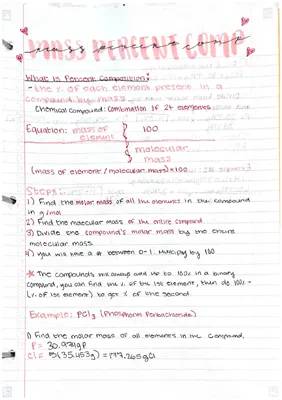 MASS PERCENT COMP
mass percent comp
What is Percent Composition?
- the % of each element present in a
compound by mass
Chemical compound: Combination of 2+ elements
Equation: mass of element } 100
molecular mass
(mass of element / molecular mass) × 100
Steps:
1) Find the molar mass of all the elements in the compound
in g/mol
2) Find the molecular mass of the entire compound
3) Divide the compound's molar mass by the entire
molecular mass
4) You will have a # between 0-1. Multiply by 100
* The compounds will always add up to 100% in a binary
compound, you can find the % of the 1st element, then do 100% -
(% of 1st element) to get % of the second
Example: PCl5 (Phosphorus Pentachloride)
1) Find the molar mass of all elements in the compound,
P = 30.974g P
Cl = 5(35.453g) = 177.265g Cl